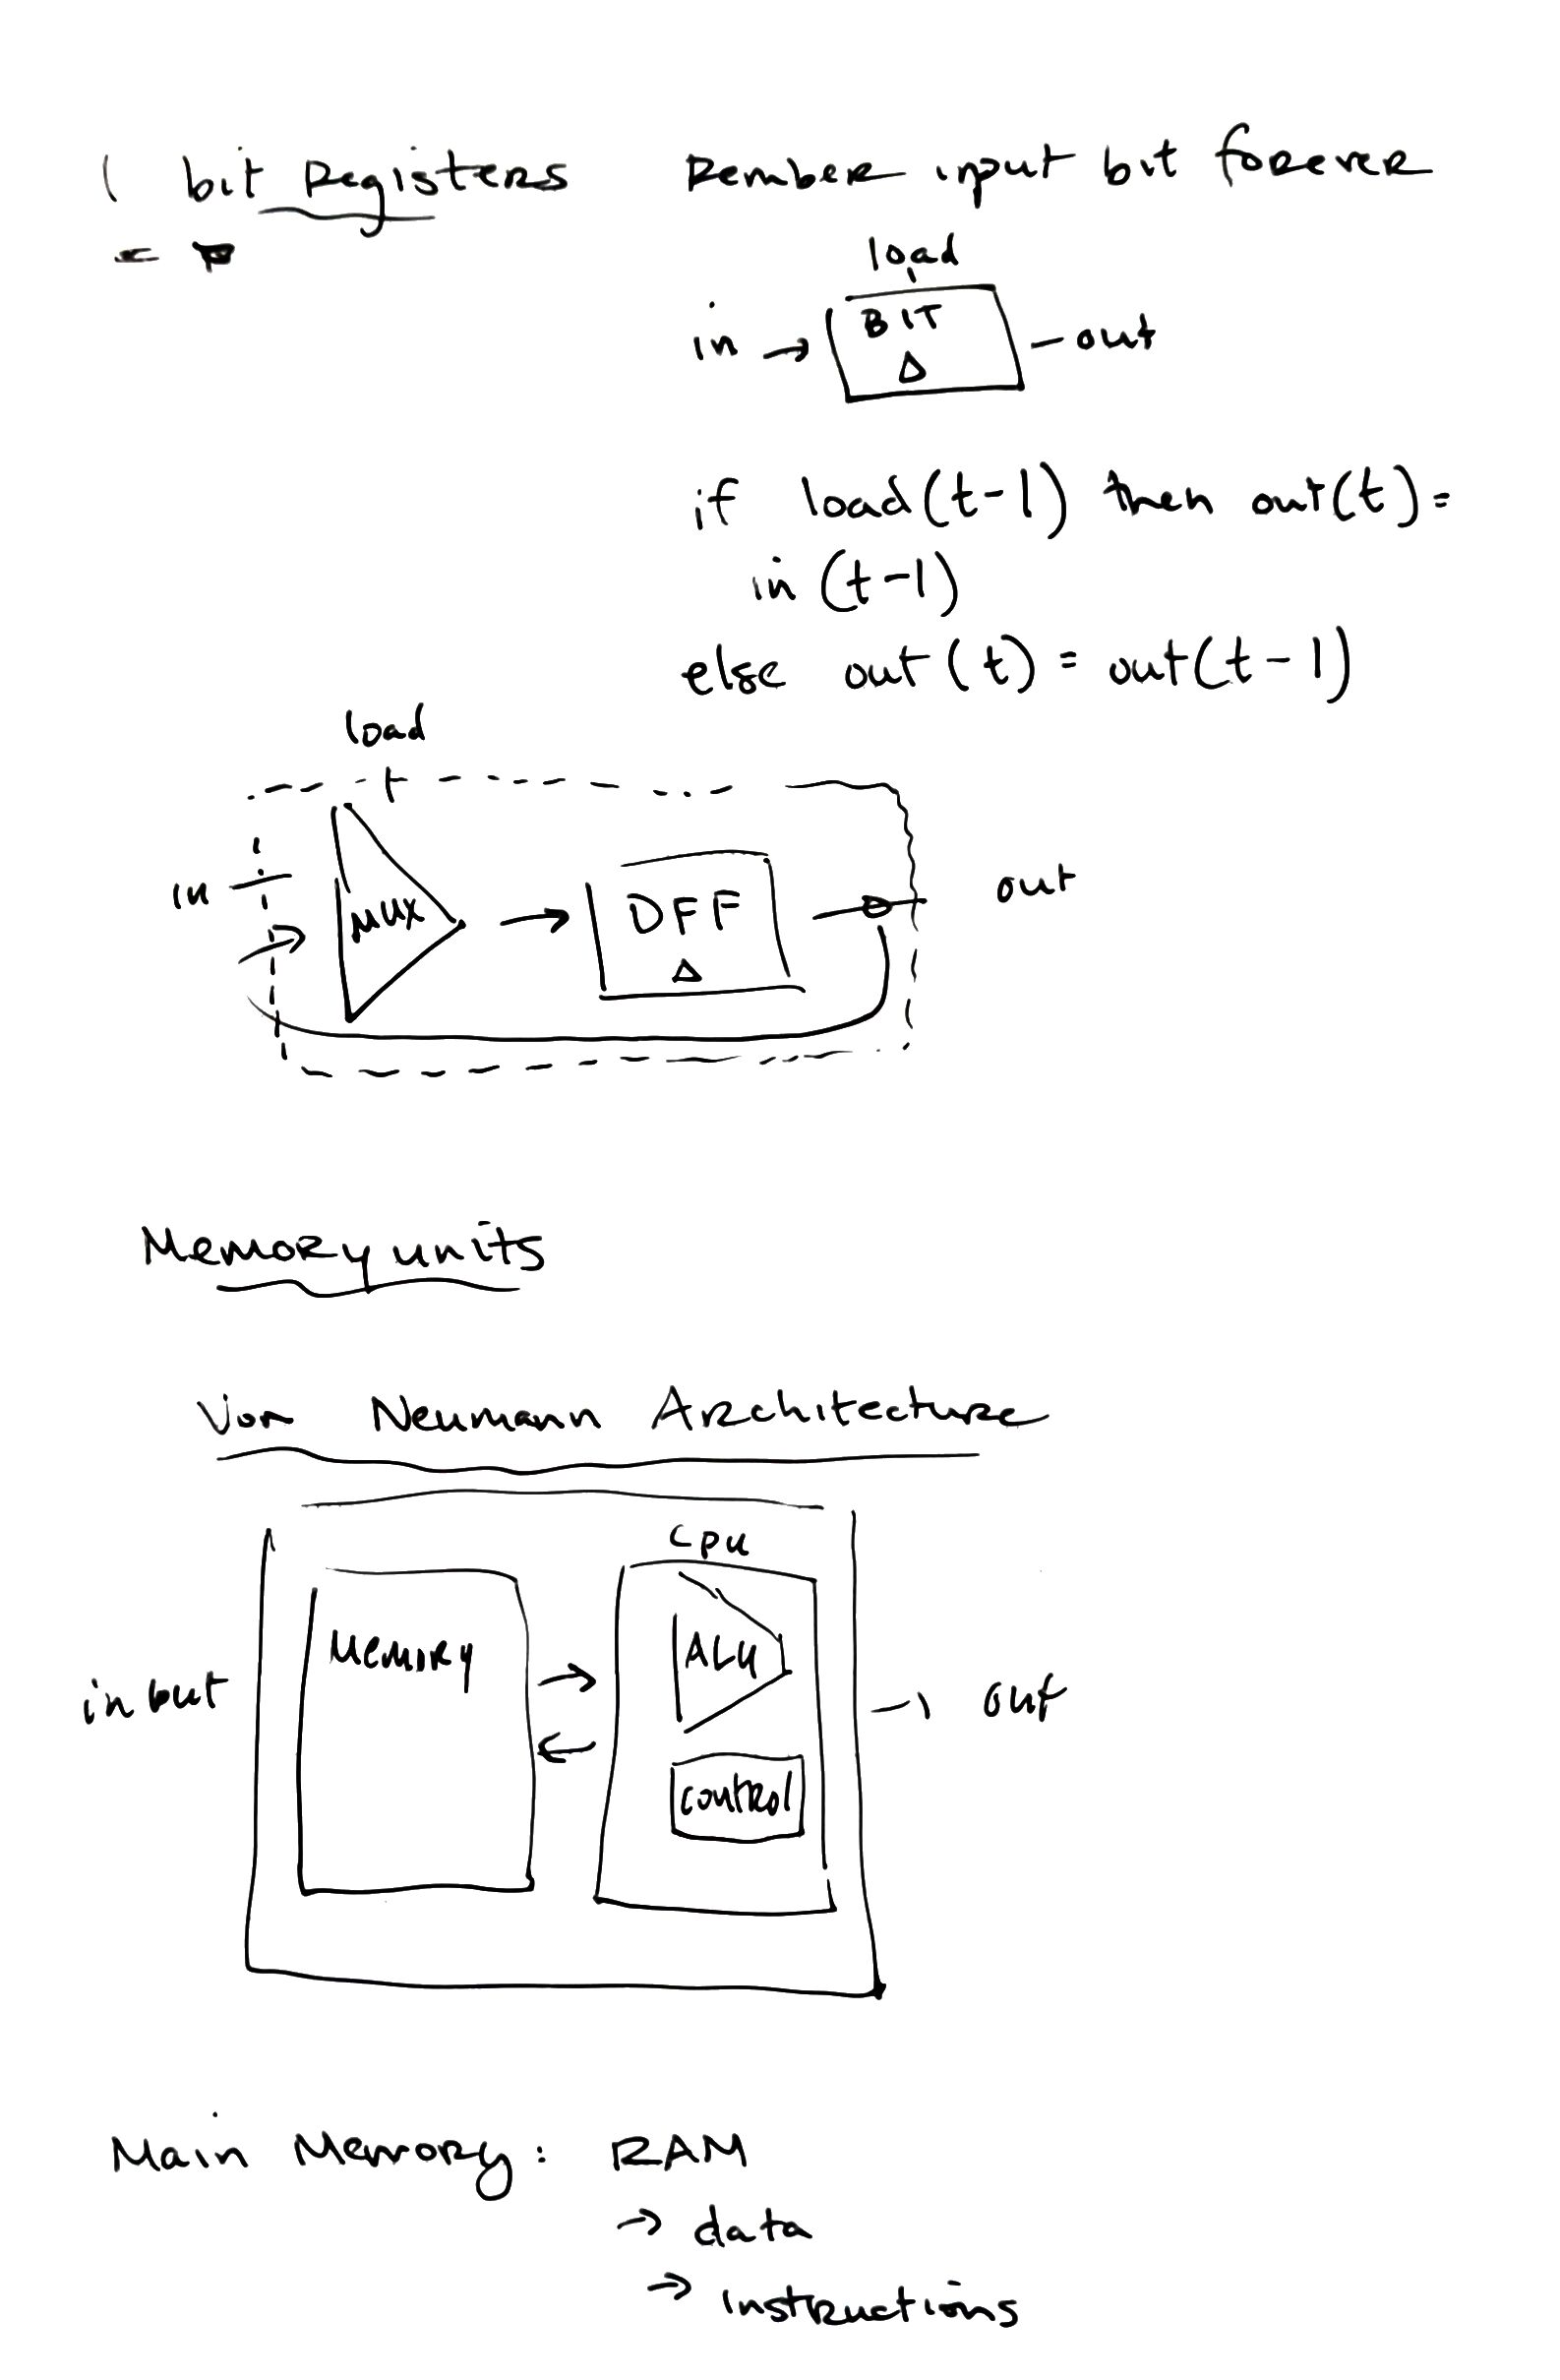 1 bit Registers Rember input bit forever
load
in → BIT - out
Δ
if load(t-1) then out(t)=
in(t-1)
else out(t) = out(t-1)
load
in MUX → DFF out
Δ
Memory units
Von Neumann Architecture
CPU
Memory ALU
input → out
control
Main Memory: RAM
→ data
→ instructions